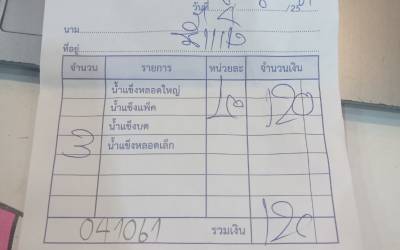 วันที่ /25
นาม
ที่อยู่
จำนวน รายการ หน่วยละ จำนวนเงิน
น้ำแข็งหลอดใหญ่ 120
น้ำแข็งแพ็ค
น้ำแข็งบด
3 น้ำแข็งหลอดเล็ก
041061 รวมเงิน 120